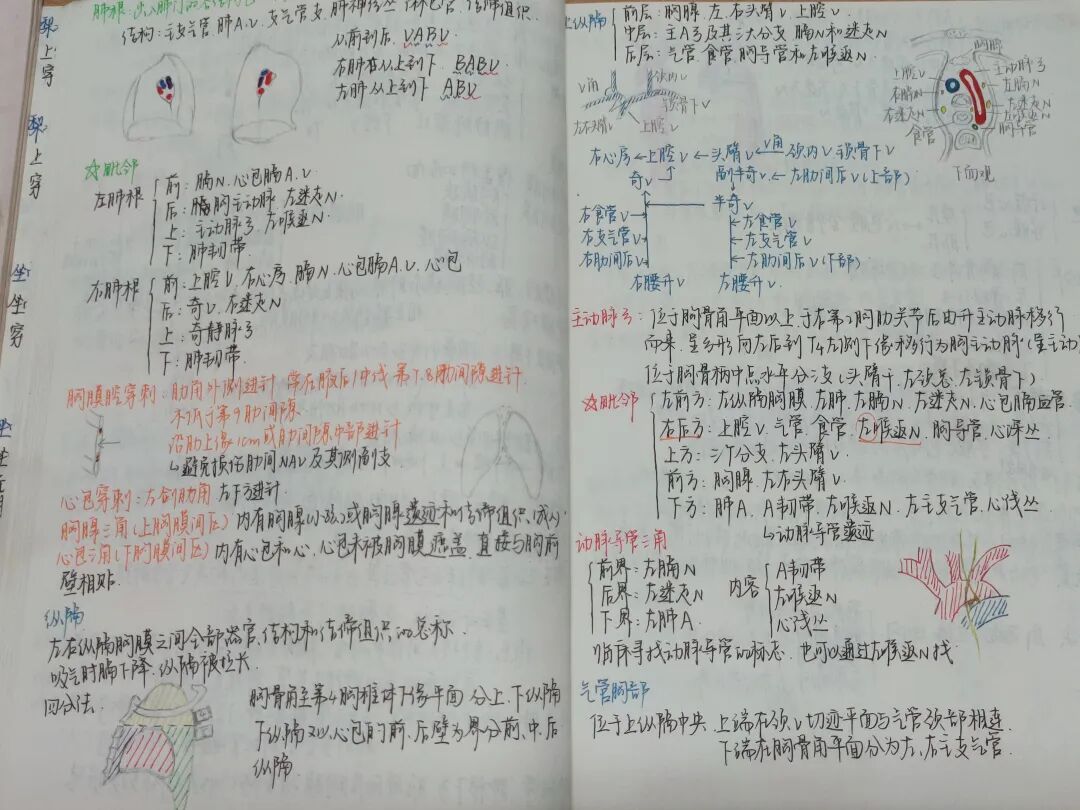 肺根：出入肺门的各结构
结构：主支气管.肺A.V.支气管支.肺神经丛.淋巴管.结缔组织.
从前到后 VABV
右肺根从上到下 BABV
左肺从上到下 ABV
梨上穿
梨上穿
坐坐穿
☆毗邻
左肺根
前：膈N.心包膈A.V
后：胸主动脉.左迷走N.
上：主动脉弓.左喉返N.
下：肺韧带.
右肺根
前：上腔V.右心房.膈N.心包膈A.V.心包
后：奇V.右迷走N
上：奇静脉弓
下：肺韧带.
胸膜腔穿刺：肋角外侧进针 常在腋后/中线 第7.8肋间隙进针.
不低于第9肋间隙
沿肋上缘1cm或肋间隙中部进针
↳避免损伤肋间NAV及其侧副支
心包穿刺：左剑肋角 左下方进针
胸腺三角(上胸膜间区) 内有胸腺(小孩)或胸腺遗迹和结缔组织.(成人).
心包三角(下胸膜间区) 内有心包和心.心包未被胸膜遮盖.直接与胸前
壁相贴.
纵隔
左右纵隔胸膜之间全部器官.结构和结缔组织的总称.
吸气时膈下降.纵隔被拉长
四分法.
胸骨角至第4胸椎体下缘平面 分上.下纵隔
下纵隔又以心包的前.后壁为界分前.中.后
纵隔.
上纵隔
前层：胸腺.左.右头臂V.上腔V.
中层：主A弓及其三大分支.膈N和迷走N
后层：气管.食管.胸导管和左喉返N.
V角
颈内V
锁骨下V
左右头臂V
上腔V
胸腺
上腔V
右膈N
右迷走N
食管
主动脉弓
左膈N
左迷走N
左喉返N
胸导管
下面观
右心房←上腔V←头臂V←V角 颈内V.锁骨下V
奇V
副半奇V←左肋间后V(上部)
半奇V
右食管V
右支气管V
右肋间后V
左食管V
左支气管V
左肋间后V(下部)
右腰升V
左腰升V.
主动脉弓：位于胸骨角平面以上.于右第2胸肋关节后由升主动脉移行
而来.呈弓形向左后到T4左侧下缘移行为胸主动脉
位于胸骨柄中点水平分支(头臂干.左颈总.左锁骨下)
☆毗邻
左前方：左纵隔胸膜.左肺.左膈N.左迷走N.心包膈血管.
右后方：上腔V.气管.食管.左喉返N.胸导管.心深丛.
上方：三个分支.左头臂V.
前方：胸腺.左右头臂V.
下方：肺A.A韧带.左喉返N.左主支气管.心浅丛
↳动脉导管遗迹
动脉导管三角
前界：左膈N
后界：左迷走N
下界：左肺A.
内容
A韧带
左喉返N
心浅丛
临床寻找动脉导管的标志.也可以通过左喉返N找
气管胸部
位于上纵隔中央.上端在颈V切迹平面与气管颈部相连
下端在胸骨角平面分为左.右主支气管.